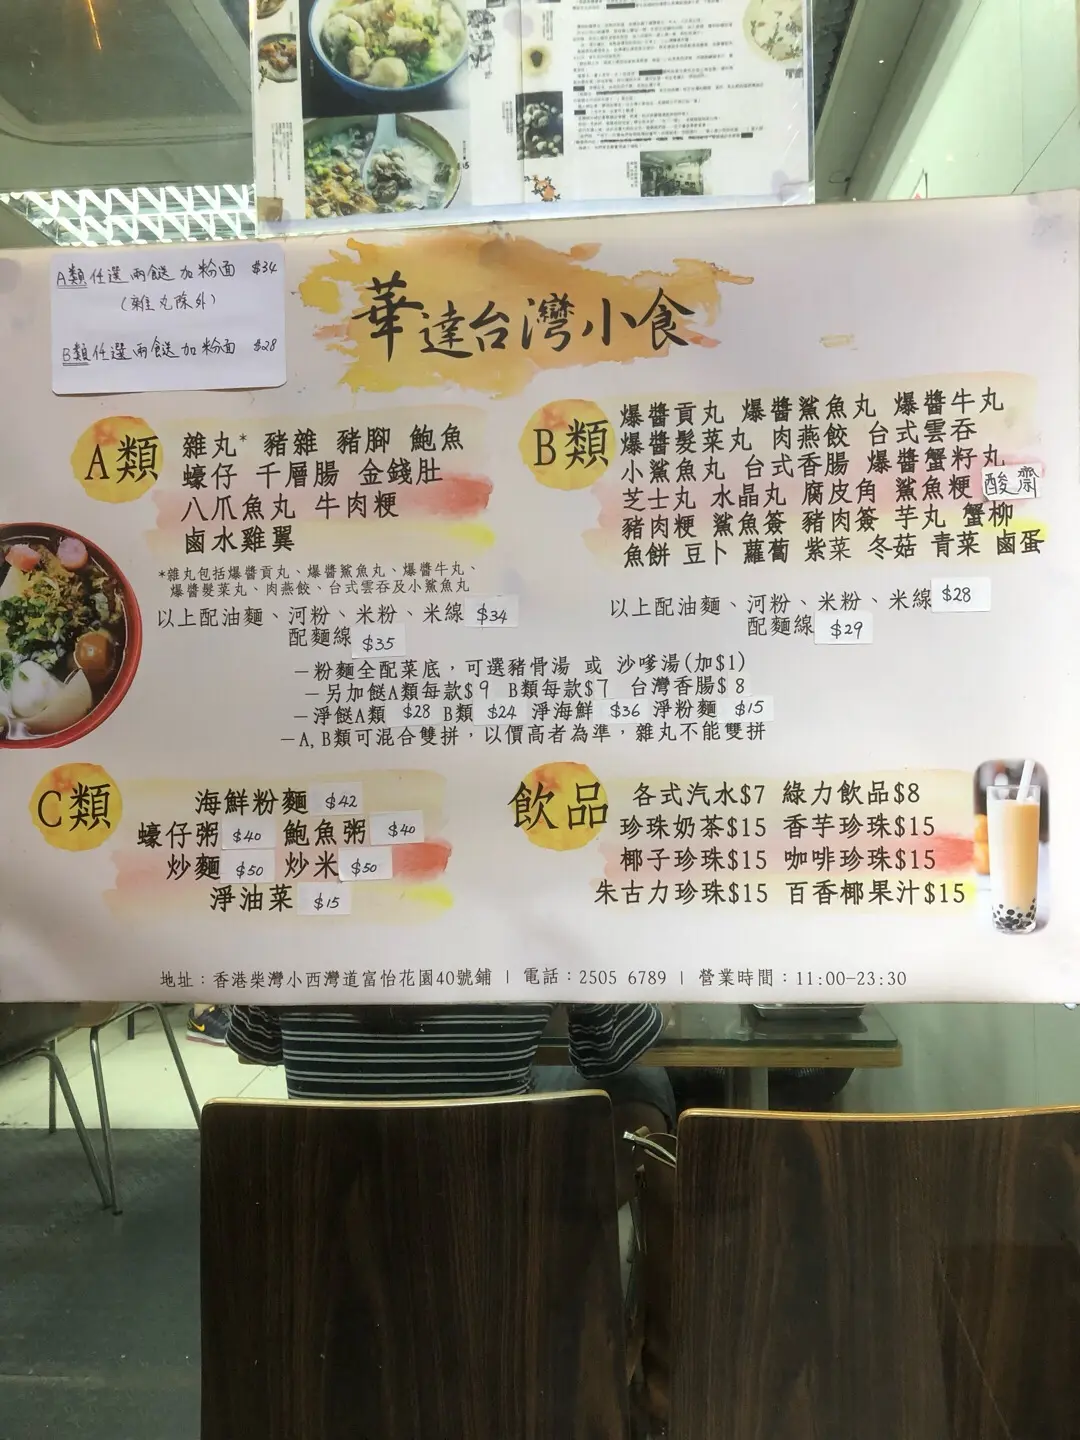 A類任選兩餸加粉面 $34
(雜丸除外)
B類任選兩餸加粉面 $28
華達台灣小食
A類
雜丸* 豬雜 豬腳 鮑魚
蠔仔 千層腸 金錢肚
八爪魚丸 牛肉粳
鹵水雞翼
*雜丸包括爆醬貢丸、爆醬鯊魚丸、爆醬牛丸、
爆醬髮菜丸、肉燕餃、台式雲吞及小鯊魚丸
以上配油麵、河粉、米粉、米線 $34
配麵線 $35
B類
爆醬貢丸 爆醬鯊魚丸 爆醬牛丸
爆醬髮菜丸 肉燕餃 台式雲吞
小鯊魚丸 台式香腸 爆醬蟹籽丸
芝士丸 水晶丸 腐皮角 鯊魚粳 酸齋
豬肉粳 鯊魚簽 豬肉簽 芋丸 蟹柳
魚餅 豆卜 蘿蔔 紫菜 冬菇 青菜 鹵蛋
以上配油麵、河粉、米粉、米線 $28
配麵線 $29
－粉麵全配菜底，可選豬骨湯 或 沙嗲湯(加$1)
－另加餸A類每款$9 B類每款$7 台灣香腸$8
－淨餸A類 $28 B類 $24 淨海鮮 $36 淨粉麵 $15
－A,B類可混合雙拼，以價高者為準，雜丸不能雙拼
C類
海鮮粉麵 $42
蠔仔粥 $40 鮑魚粥 $40
炒麵 $50 炒米 $50
淨油菜 $15
飲品
各式汽水$7 綠力飲品$8
珍珠奶茶$15 香芋珍珠$15
椰子珍珠$15 咖啡珍珠$15
朱古力珍珠$15 百香椰果汁$15
地址：香港柴灣小西灣道富怡花園40號鋪 | 電話：2505 6789 | 營業時間：11:00-23:30